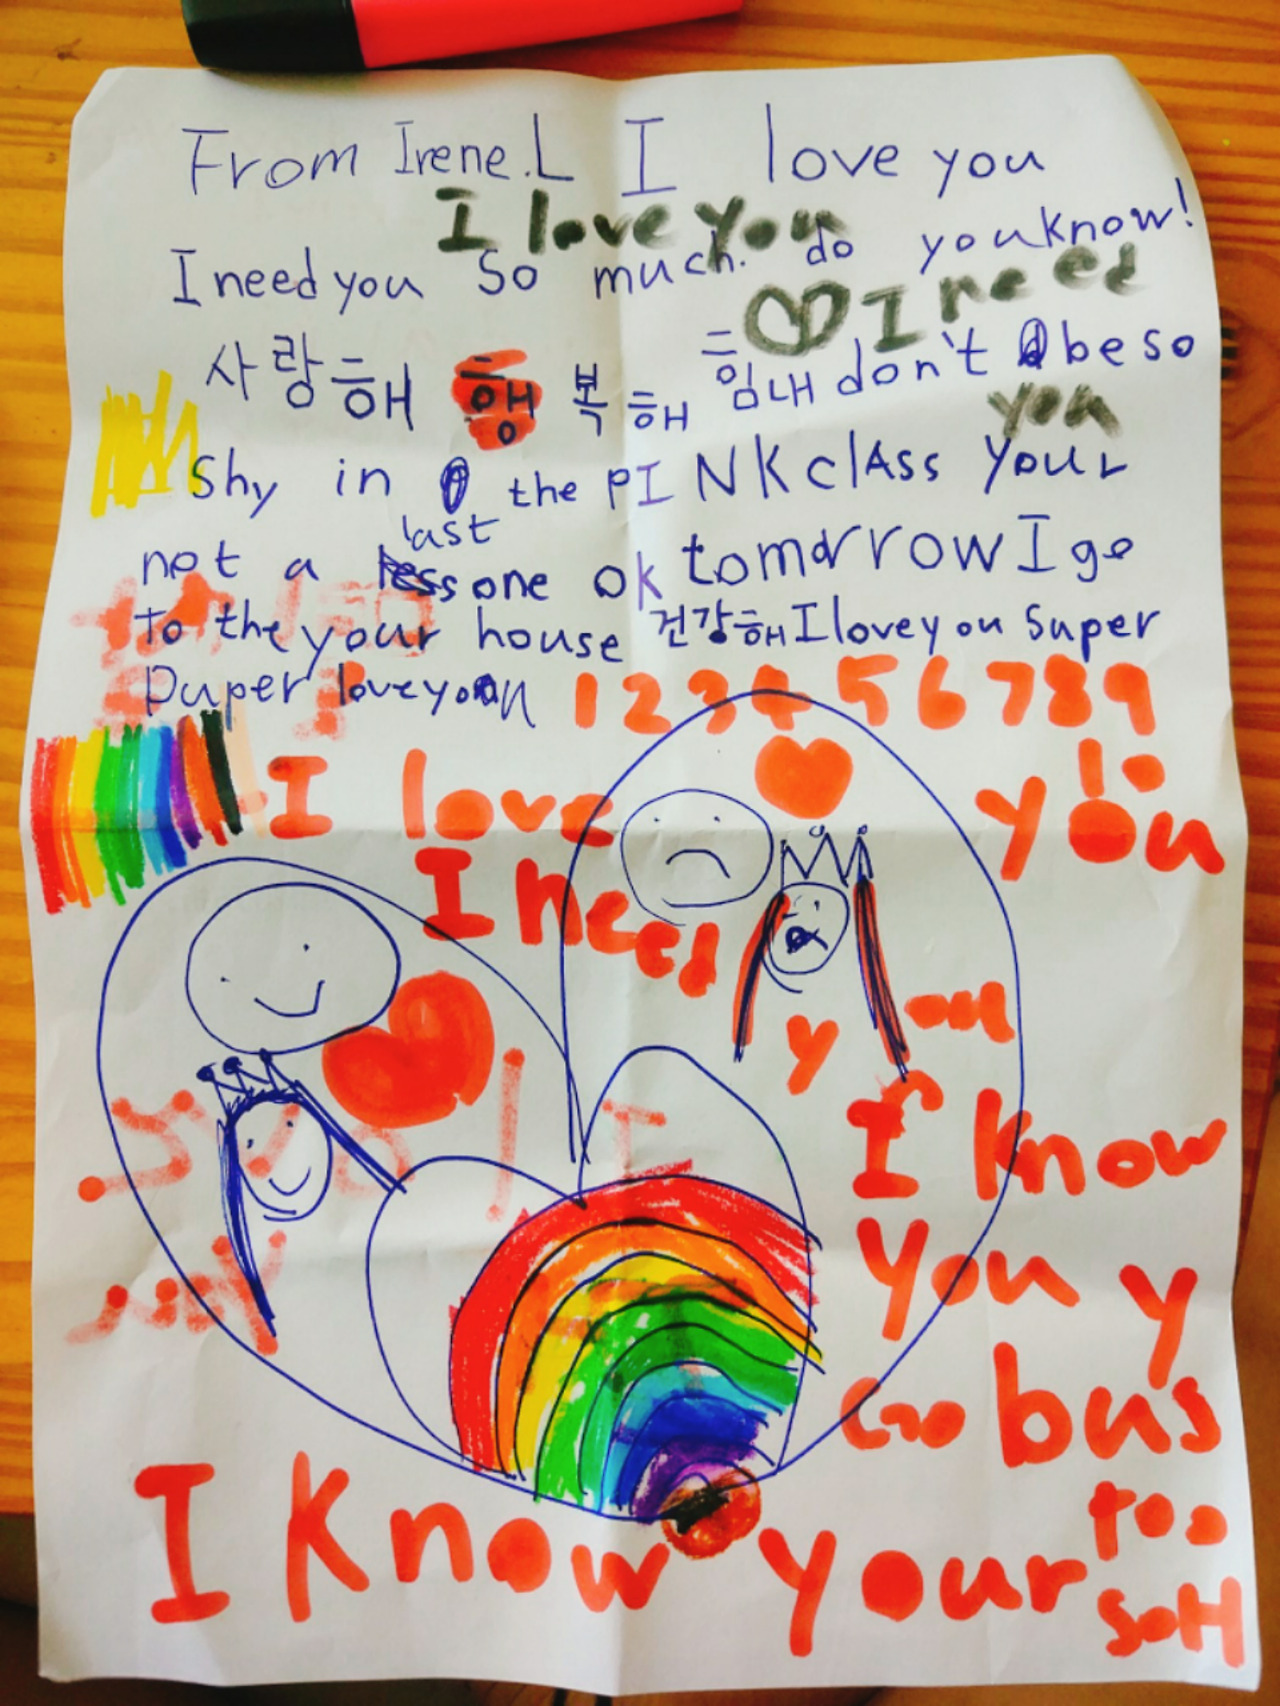 From Irene.L I love you
I love you
I need you So much. do you know!
I need
사랑해 행복해 힘내 don't be so
you
Shy in the PINK clAss your
last
not a one ok tomorrow I go
to the your house 건강해 I love you Super
Duper love you
1 2 3 4 5 6 7 8 9
I love you
I need
you
I know
you y
Go bus
too
I know your